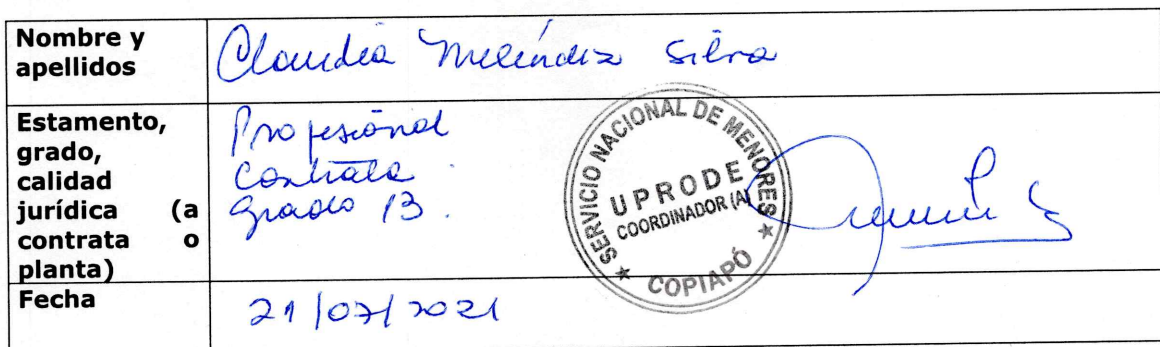 Nombre y apellidos
Claudia Meléndez Silva
Estamento, grado, calidad jurídica (a contrata o planta)
Profesional
Contrata
grado 13.
SERVICIO NACIONAL DE MENORES
UPRODE
COORDINADOR (A)
★ COPIAPÓ ★
Fecha
21/07/2021